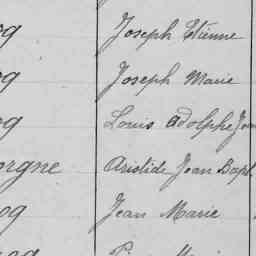 og Joseph Etienne
og Joseph Marie
og Louis Adolphe Jean
orgne Aristide Jean Bapt
og Jean Marie